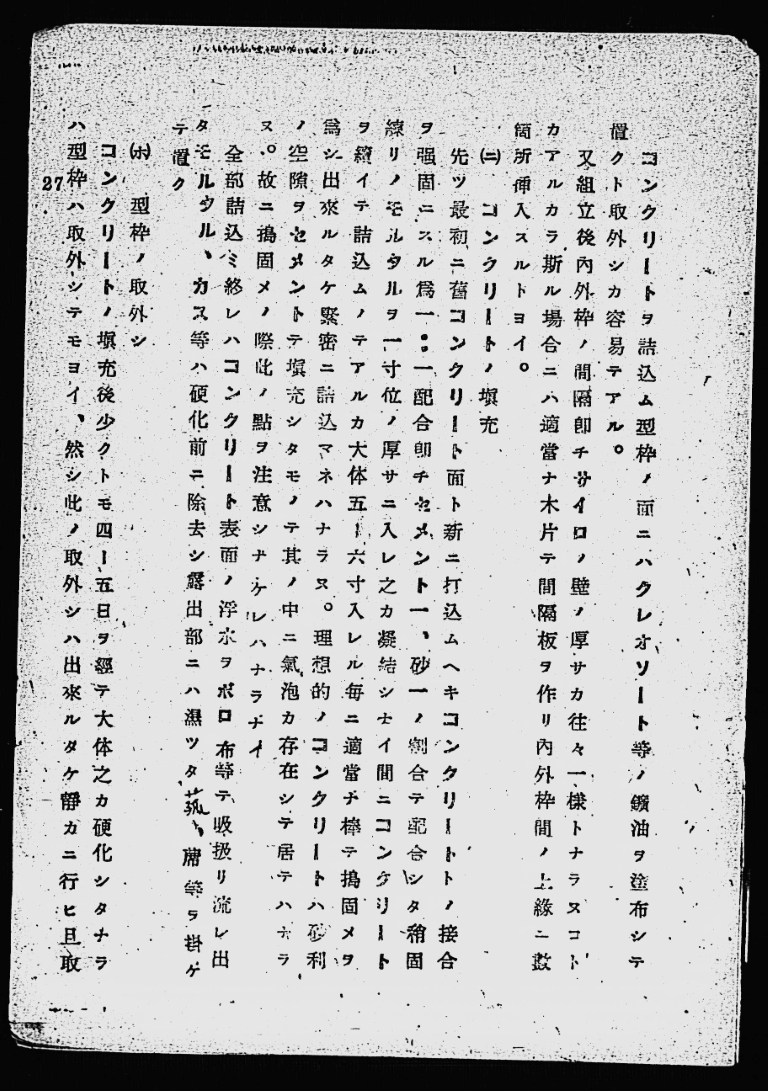 コンクリートヲ詰込ム型枠ノ面ニハクレオソート等ノ鑛油ヲ塗布シテ
置クト取外シカ容易テアル。
又組立後內外枠ノ間隔卽チサイロノ壁ノ厚サカ往々一樣トナラヌコト
カアルカラ斯ル場合ニハ適當ナ木片テ間隔板ヲ作リ內外枠間ノ上緣ニ數
箇所揷入スルトヨイ。
㈡ コンクリートノ塡充
先ツ最初ニ舊コンクリート面ト新ニ打込ムヘキコンクリートトノ接合
ヲ强固ニスル爲一：一配合卽チセメント一、砂一ノ割合テ配合シタ稍固
練リノモルタルヲ一寸位ノ厚サニ入レ之カ凝結シナイ間ニコンクリート
ヲ續イテ詰込ムノテアルカ大体五ー六寸入レル每ニ適當ナ棒テ搗固メヲ
爲シ出來ルタケ緊密ニ詰込マネハナラヌ。理想的ノコンクリートハ砂利
ノ空隙ヲセメントテ塡充シタモノテ其ノ中ニ氣泡カ存在シテ居テハナラ
ヌ。故ニ搗固メノ際此ノ點ヲ注意シナケレハナラナイ
全部詰込ミ終レハコンクリート表面ノ浮水ヲボロ布等テ吸扱リ流レ出
タモルタル、カス等ハ硬化前ニ除去シ露出部ニハ濕ツタ 、蓆等ヲ掛ケ
テ置ク
㈭ 型枠ノ取外シ
コンクリートノ塡充後少クトモ四ー五日ヲ經テ大体之カ硬化シタナラ
ハ型枠ハ取外シテモヨイ、然シ此ノ取外シハ出來ルタケ靜カニ行ヒ且取
27